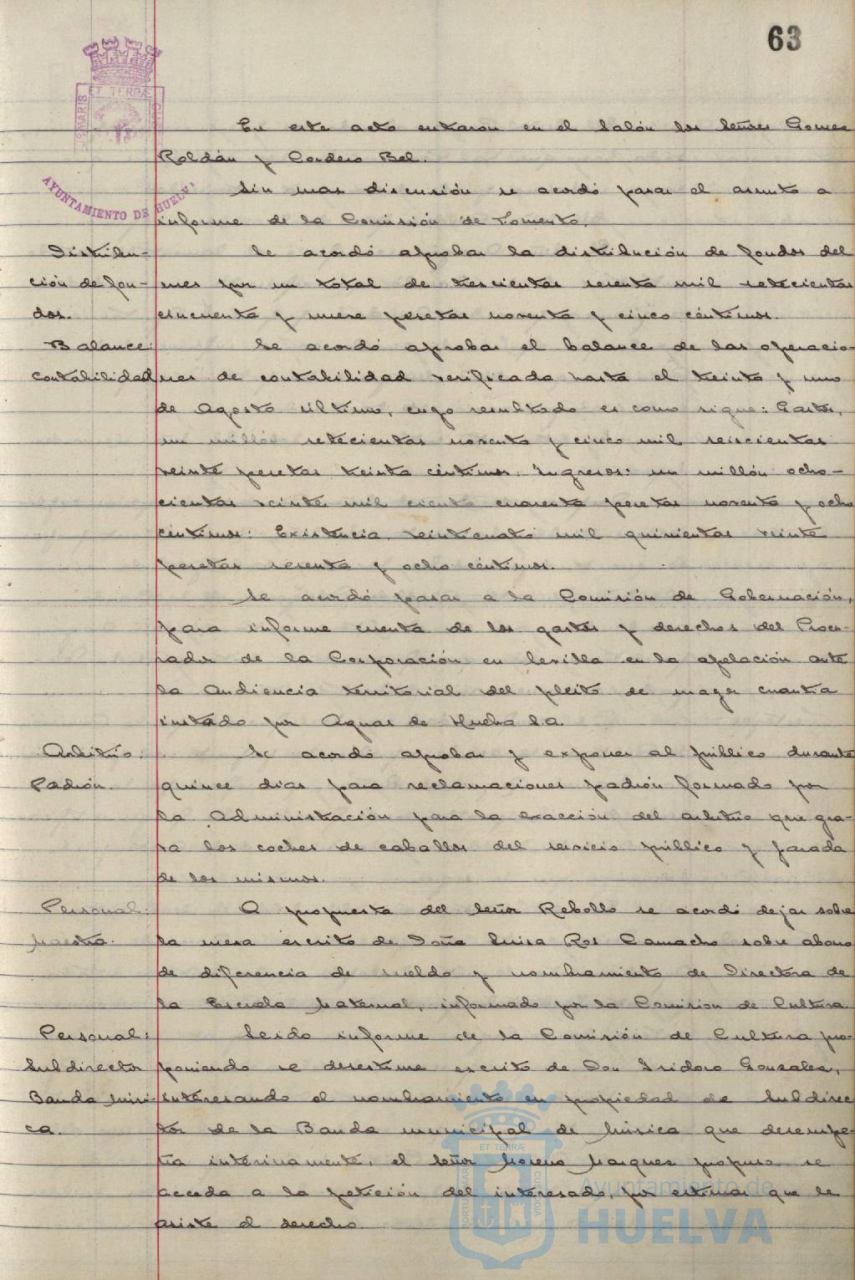 63
PORTUS MARIS ET TERRÆ CUSTODIA
AYUNTAMIENTO DE HUELVA
En este acto entraron en el Salón los Señores Gomez
Roldán y Cordero Bel.
Sin mas discusión se acordó pasar el asunto a
informe de la Comisión de Fomento.
Distribu- Se acordó aprobar la distribución de fondos del
ción de fon- mes por un total de trescientas sesenta mil setecientas
dos. cincuenta y nueve pesetas noventa y cinco céntimos.
Balance: Se acordó aprobar el balance de las operacio-
contabilidad nes de contabilidad verificada hasta el treinta y uno
de Agosto último, cuyo resultado es como sigue: Gastos,
un millón setecientas noventa y cinco mil seiscientas
veinte pesetas treinta céntimos. Ingresos: un millón ocho-
cientas veinte mil ciento cuarenta pesetas noventa y ocho
céntimos: Existencia, veinticuatro mil quinientas veinte
pesetas sesenta y ocho céntimos.
Se acordó pasar a la Comisión de Gobernación,
para informe cuenta de los gastos y derechos del Procu-
rador de la Corporación en Sevilla en la apelación ante
la Audiencia territorial del pleito de mayor cuantía
instado por Aguas de Huelva S.A.
Arbitrio: Se acordó aprobar y exponer al público durante
Padrón. quince dias para reclamaciones padrón formado por
la Administración para la exacción del arbitrio que gra-
va los coches de caballos del servicio público y parada
de los mismos.
Personal: A propuesta del Señor Rebollo se acordó dejar sobre
Maestra. la mesa escrito de Doña Luisa Ros Camacho sobre abono
de diferencia de sueldo y nombramiento de Directora de
la Escuela Maternal, informado por la Comision de Cultura
Personal: Leido informe de la Comisión de Cultura pro-
Subdirector poniendo se desestime escrito de Don Isidoro Gonzalez,
Banda Músi- interesando el nombramiento en propiedad de Subdirec
ca. tor de la Banda municipal de Música que desempe-
ña interinamente, el Señor Moreno Marquez propuso se
acceda a la petición del interesado, por estimar que le
asiste el derecho
Ayuntamiento de
HUELVA